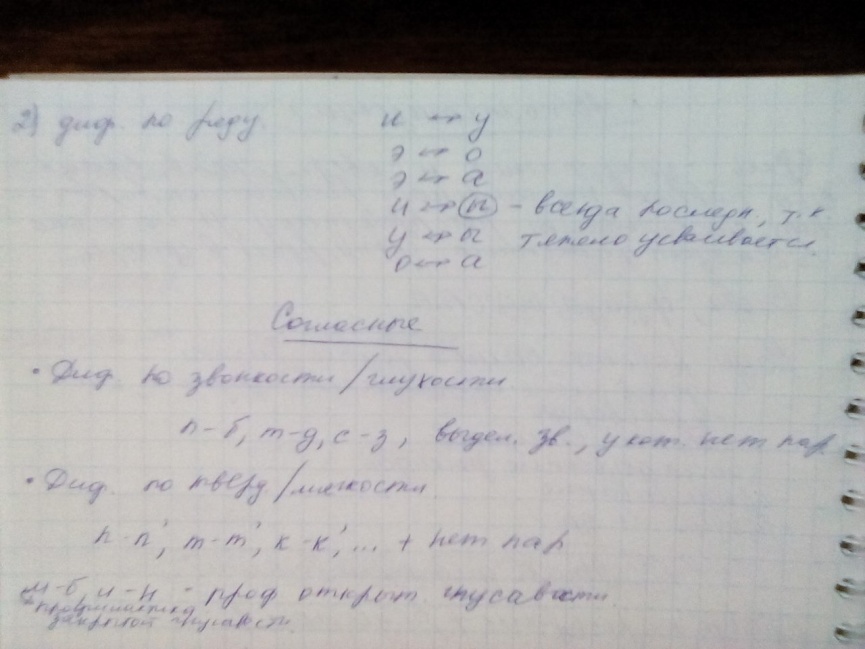 2) диф. по ряду. и ↔ у
э ↔ о
э ↔ а
и ↔ ы - всегда последн., т.к.
у ↔ ы тяжело усваивается.
о ↔ а
Согласные
• Диф. по звонкости/глухости
п-б, т-д, с-з, выдел. зв., у кот. нет пар
• Диф. по тверд/мягкости
п-п', т-т', к-к', ... + нет пар
м-б, - проф. открыт. гнусавости
профилактика
закрытой гнусавости